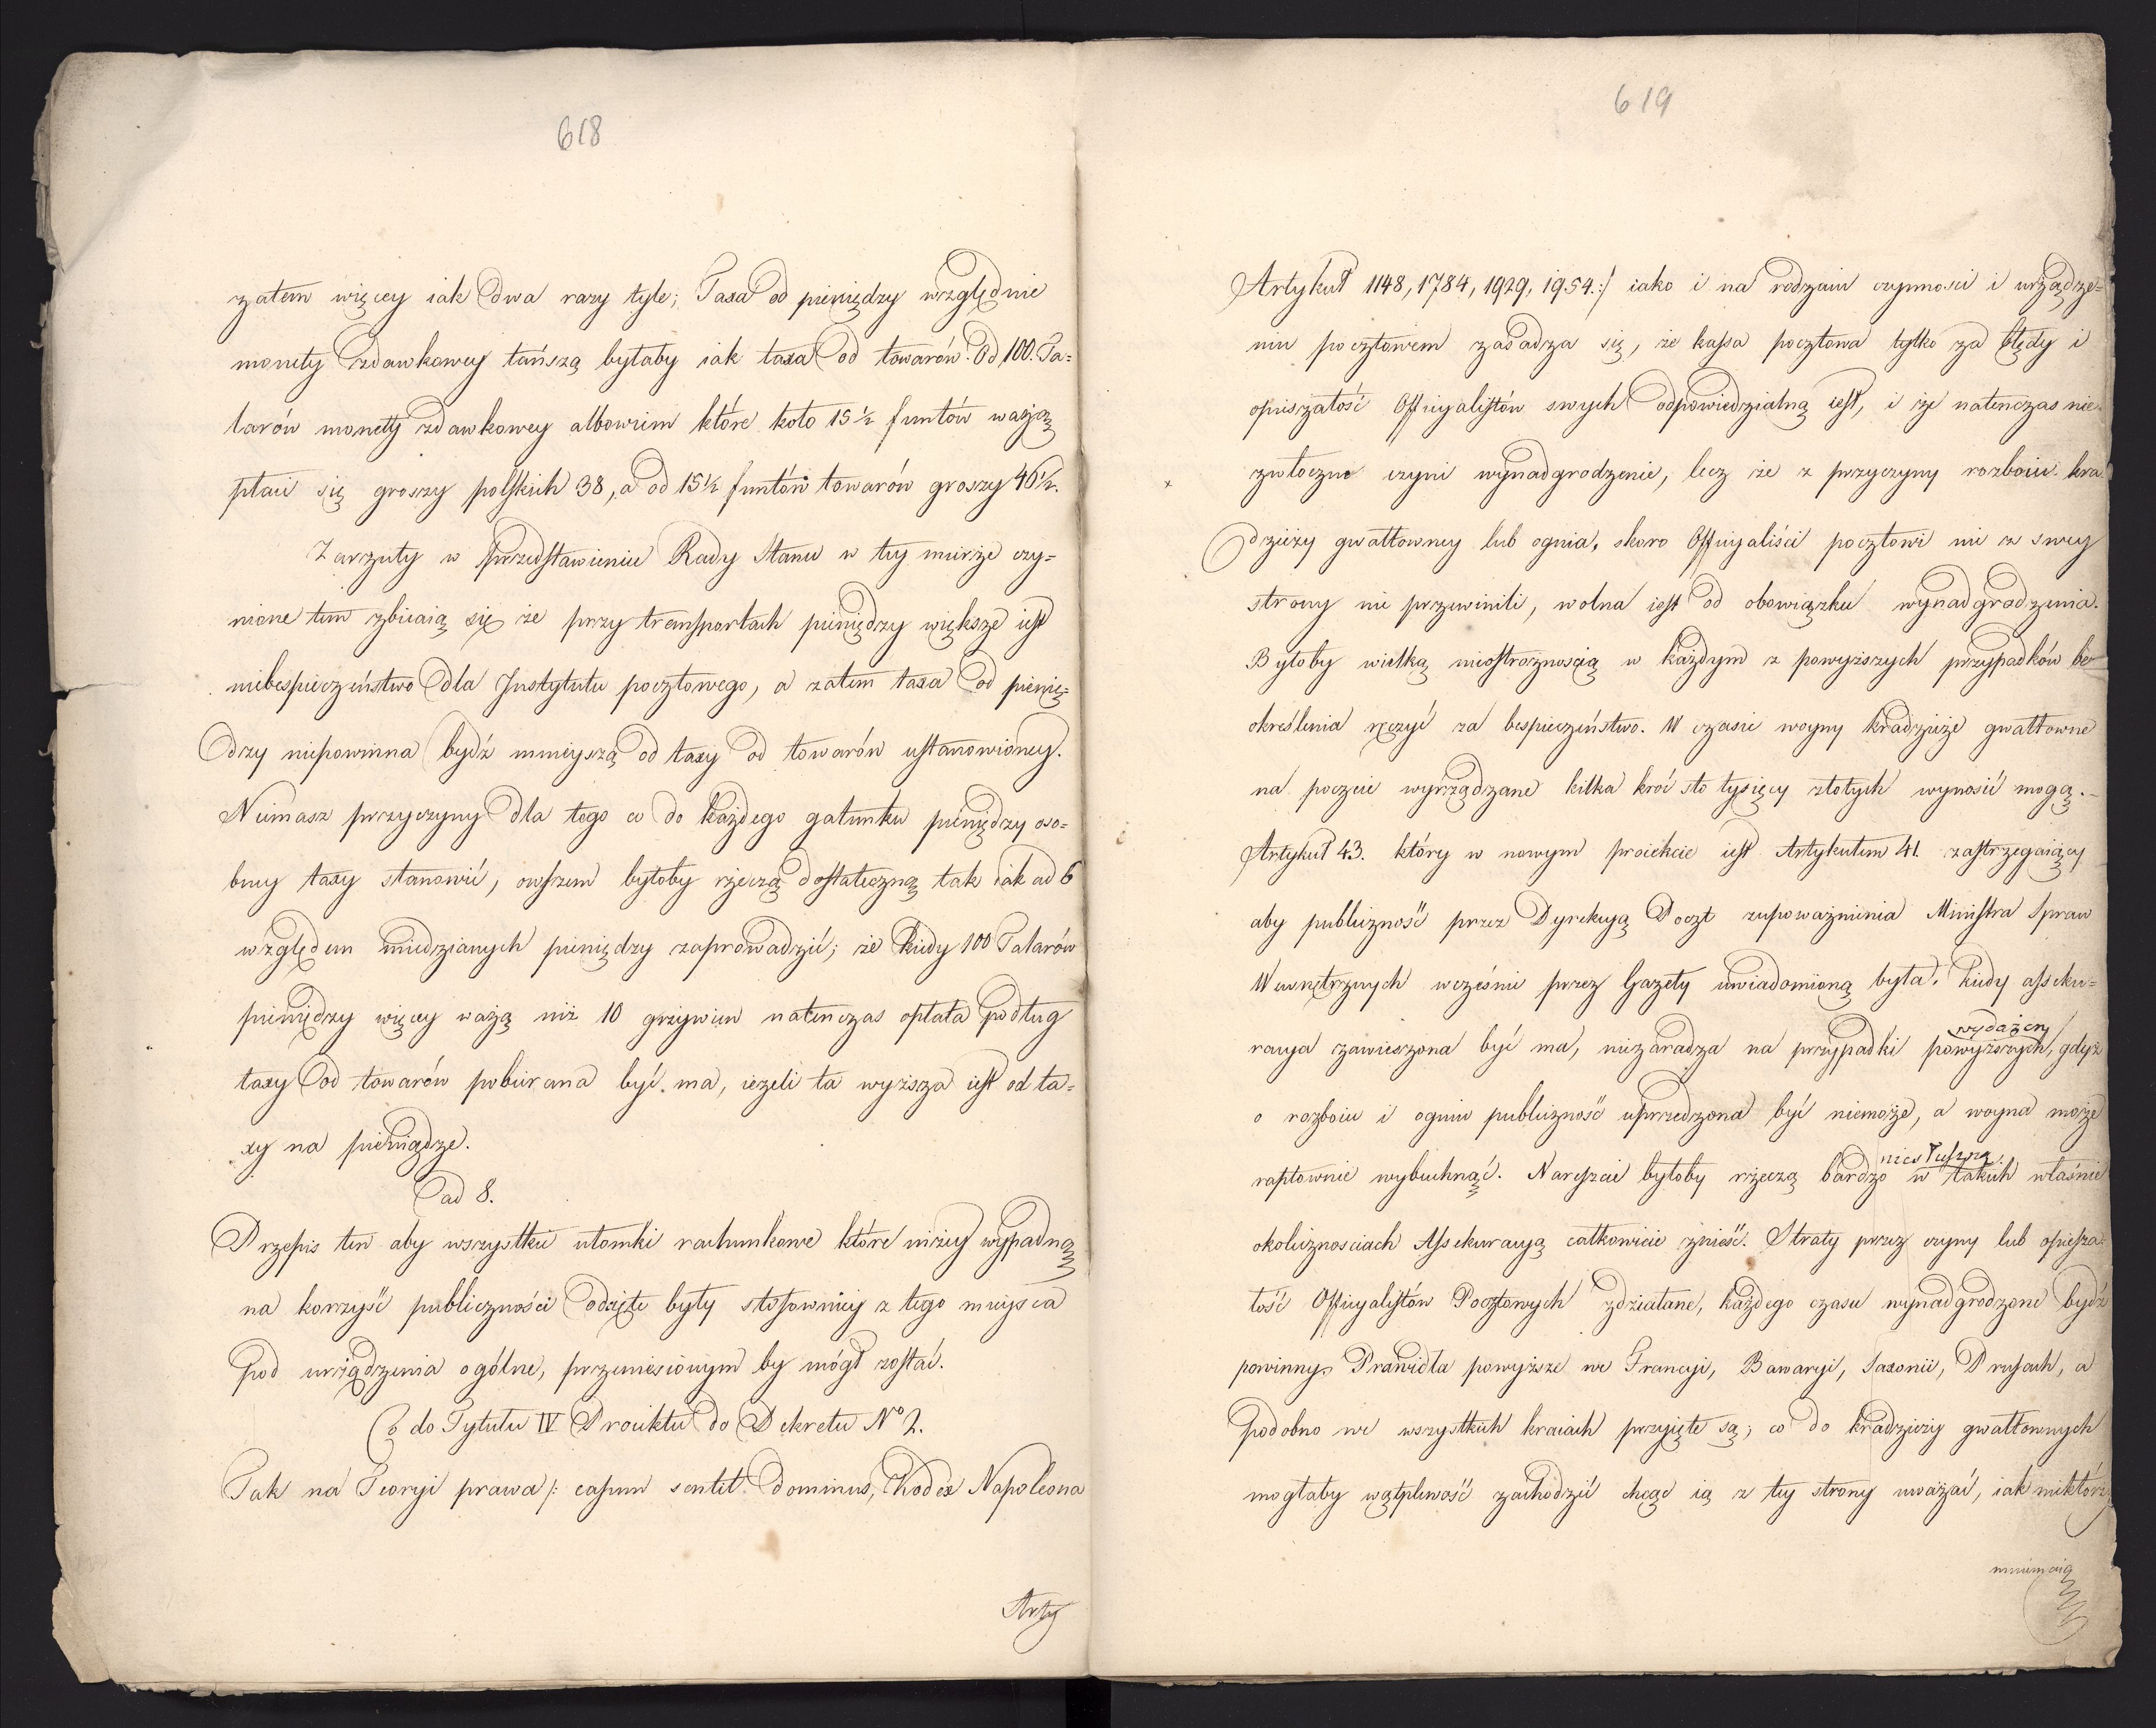 618
zatem więcey iak dwa razy tyle; Taxa od pieniędzy względnie
monety zdawkowey tańszą byłaby iak taxa od towarów. Od 100. Ta-
larów monety zdawkowey albowiem które koło 15 ½ funtów ważą
płaci się groszy polskich 38, a od 15 ½ funtów towarów groszy 46 ½.
Zarzuty w przedstawieniu Rady Stanu w tey mierze czy-
nione tem zbiiaią się że przy transportach pieniędzy większe iest
niebespieczeństwo dla Instytutu pocztowego, a zatem taxa od pienię-
dzy niepowinna bydź mnieyszą od taxy od towarów ustanowioney.
Niemasz przyczyny dla tego co do każdego gatunku pieniędzy oso-
bney taxy stanowić, owszem byłoby rzeczą dostateczną tak iak ad 6
względem miedzianych pieniędzy zaprowadzić; że kiedy 100 Talarów
pieniędzy więcey ważą niż 10 grzywien natenczas opłata podług
taxy od towarów pobierana być ma, ieżeli ta wyższa iest od ta-
xy na pieniądze.
ad 8.
Przepis ten aby wszystkie ułomki rachunkowe które niżey wypadną
na korzyść publiczności odięte były stosowniey z tego mieysca
pod urządzenia ogólne, przeniesionym by mógł zostać.
Co do Tytułu IV Proiektu do Dekretu No 2.
Tak na Teoryi prawa /: casum sentit dominus, Kodex Napoleona
Arty
619
Artykuł 1148, 1784, 1929, 1954 :/ iako i na rodzaiu czynności i urządze-
niu pocztowem zasadza się, że kassa pocztowa tylko za błędy i
opieszałość Officyalistów swych odpowiedzialną iest, i że natenczas nie-
zwłoczne czyni wynadgrodzenie, lecz że z przyczyny rozboiu. kra
dzieży gwałtowney lub ognia, skoro Officyaliści pocztowi nie z swey
strony nie przewinili, wolna iest od obowiązku wynadgrodzenia.
Byłoby wielką nieostrożnością w każdym z powyższych przypadków be
określenia ręczyć za bespieczeństwo. W czasie woyny kradzieże gwałtowne
na poczcie wyrządzane kilka kroć sto tysięcy złotych wynosić mogą.
Artykuł 43. który w nowym proiekcie iest Artykułem 41. zastrzegaiący
aby publiczność przez Dyrekcyą Poczt zupoważnienia Ministra Spraw
Wewnętrznych wcześnie przez Gazety uwiadomioną była, kiedy asseku-
racya zawieszona być ma, niezaradza na przypadki powyższych, gdyż
wydażeń
o rozboiu i ogniu publiczność uprzedzona być niemoże, a woyna może
raptownie wybuchnąć. Nareszcie byłoby rzeczą bardzo w takich właśnie
niesłuszną
okolicznosciach Assekuracyą całkowicie znieść. Straty przez czyny lub opiesza-
łość Officyalistów Pocztowych zdziałane, każdego czasu wynadgrodzone bydź
powinny. Prawidła powyższe we Francyi, Bawaryi, Saxonii, Prusach, a
podobno we wszystkich kraiach przyięte są; co do kradzieży gwałtownych
mogłaby wątpliwość zachodzić chcąc ią z tey strony uważać, iak niektórz
mniemaią